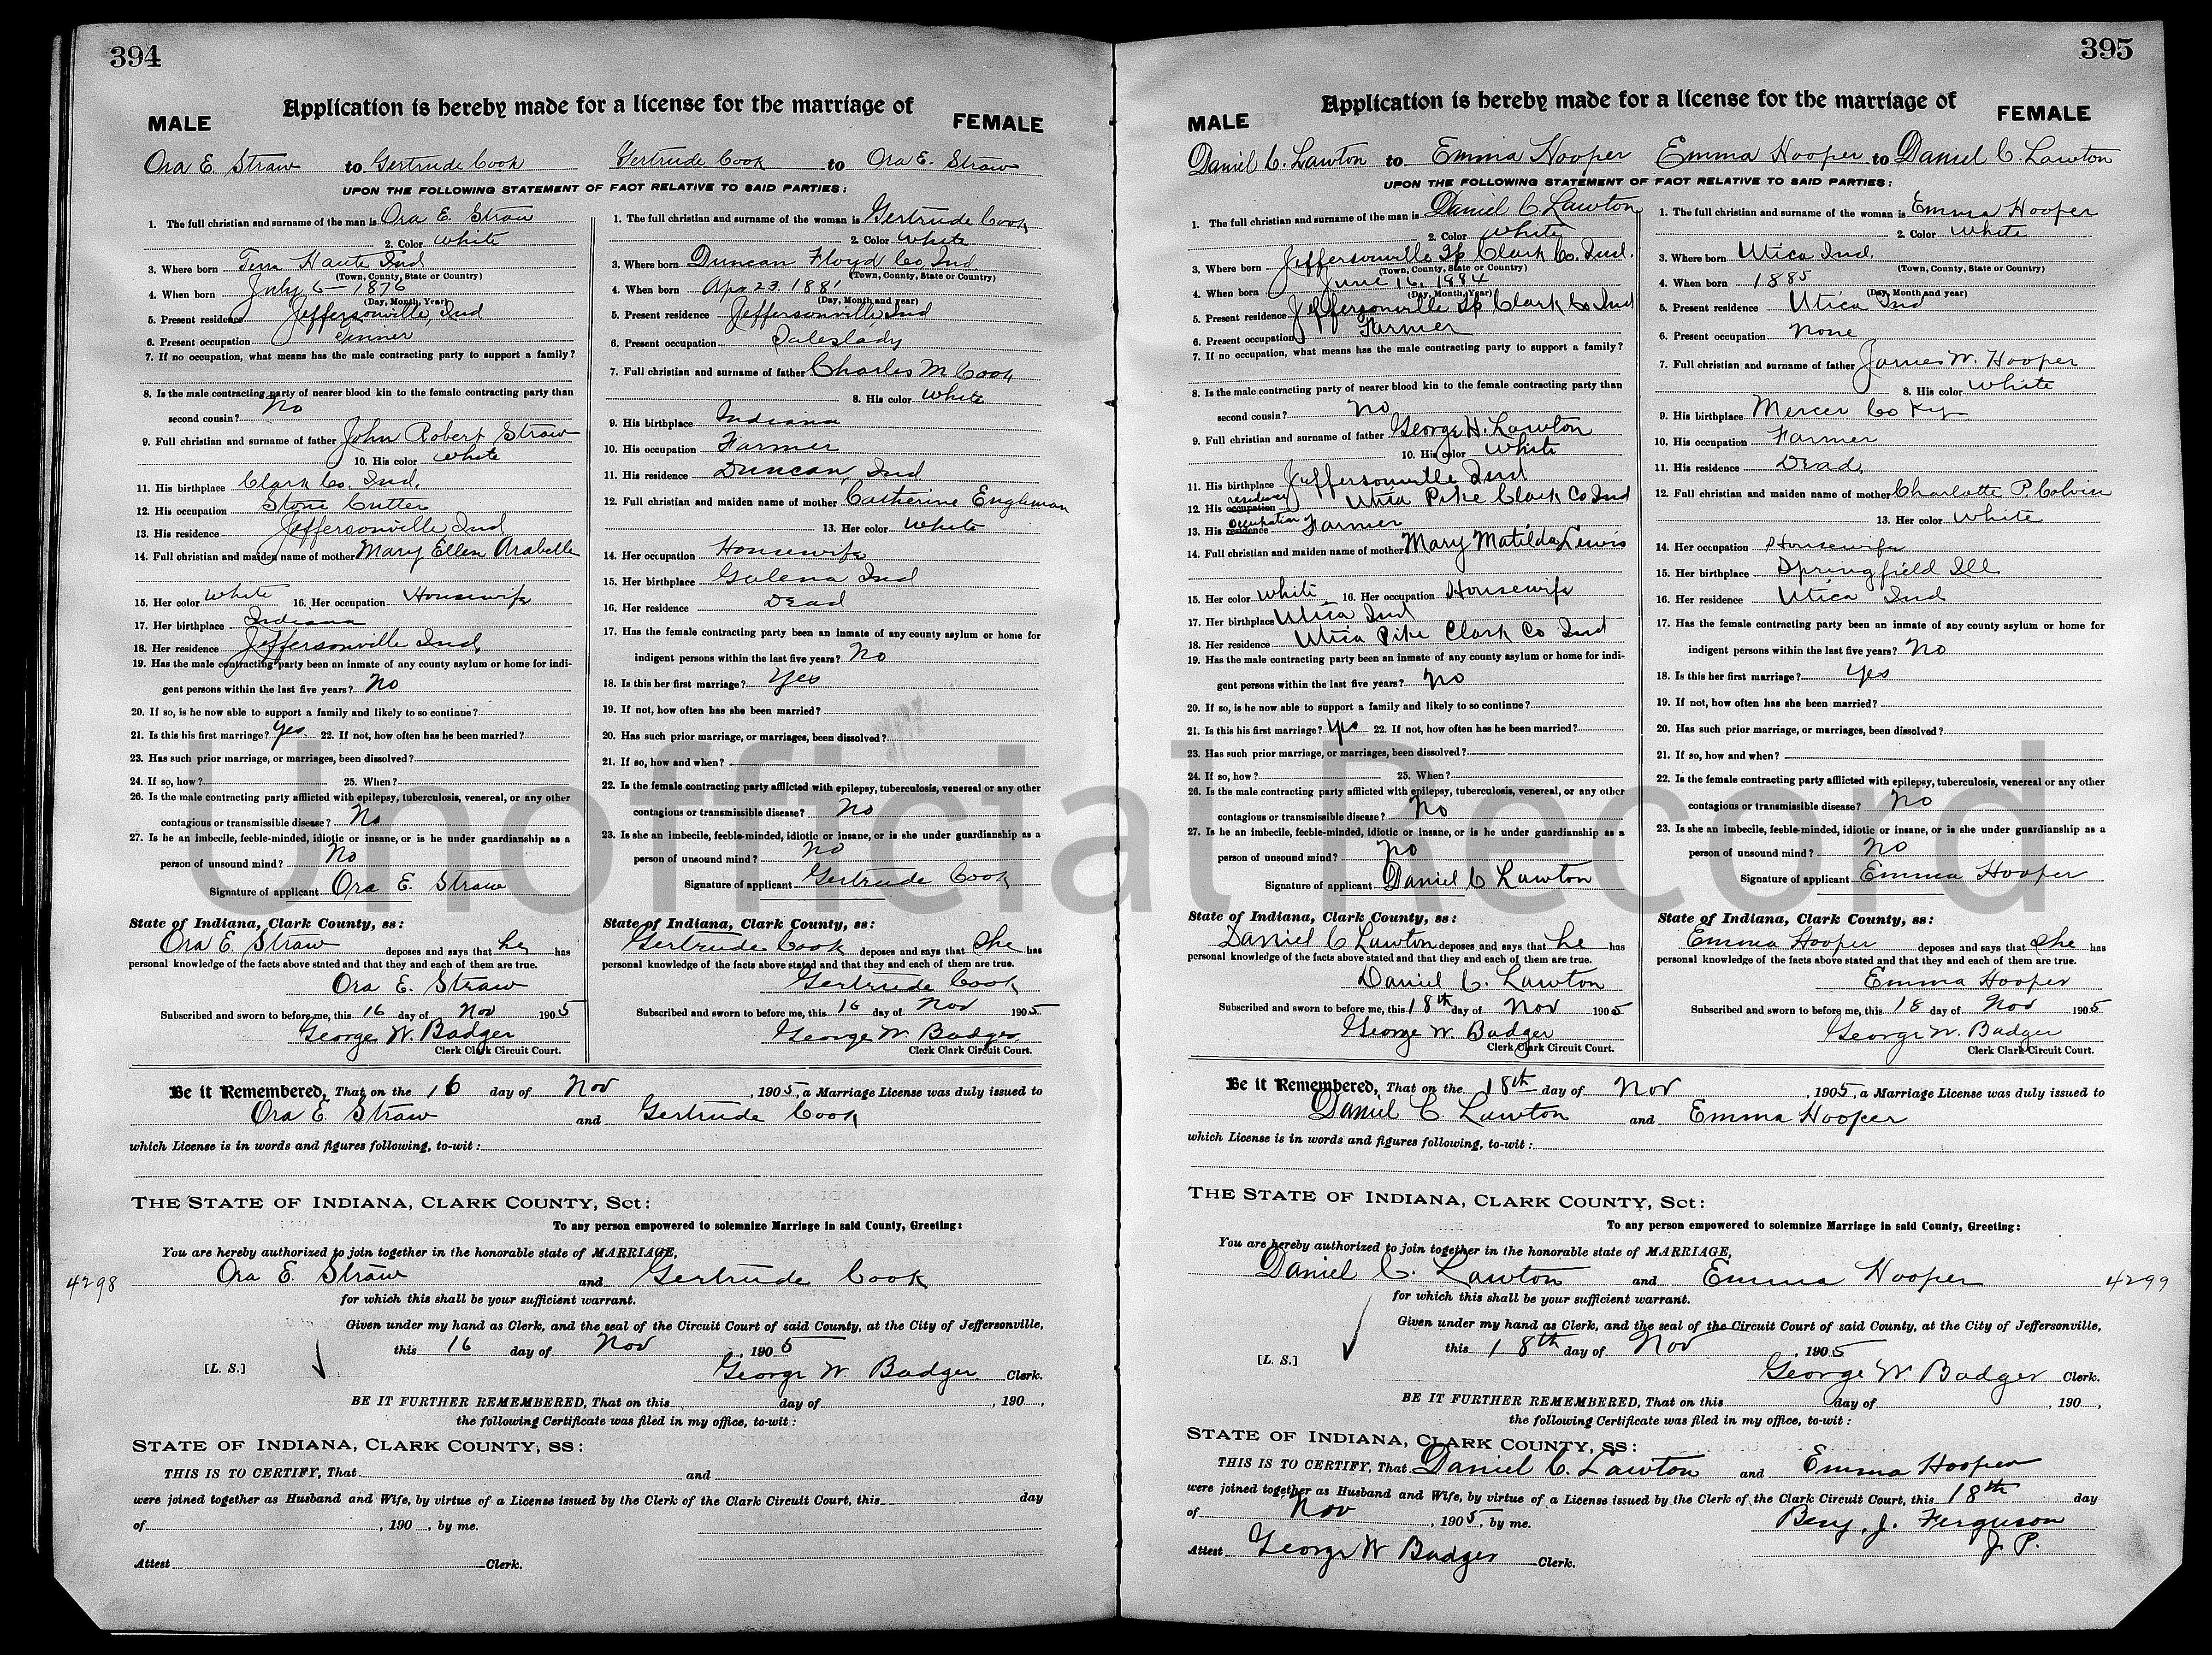 394
Application is hereby made for a license for the marriage of
MALE
FEMALE
Ora E. Straw to Gertrude Cook
Gertrude Cook to Ora E. Straw
UPON THE FOLLOWING STATEMENT OF FACT RELATIVE TO SAID PARTIES:
1. The full christian and surname of the man is Ora E. Straw
2. Color White
3. Where born Terre Haute Ind
(Town, County, State or Country)
4. When born July 6 - 1876
(Day, Month, Year)
5. Present residence Jeffersonville, Ind
6. Present occupation Tinner
7. If no occupation, what means has the male contracting party to support a family?
8. Is the male contracting party of nearer blood kin to the female contracting party than
second cousin? No
9. Full christian and surname of father John Robert Straw
10. His color White
11. His birthplace Clark Co. Ind.
12. His occupation Stone Cutter
13. His residence Jeffersonville Ind
14. Full christian and maiden name of mother Mary Ellen Arabelle
15. Her color White 16. Her occupation Housewife
17. Her birthplace Indiana
18. Her residence Jeffersonville Ind.
19. Has the male contracting party been an inmate of any county asylum or home for indi-
gent persons within the last five years? No
20. If so, is he now able to support a family and likely to so continue?
21. Is this his first marriage? Yes 22. If not, how often has he been married?
23. Has such prior marriage, or marriages, been dissolved?
24. If so, how? 25. When?
26. Is the male contracting party afflicted with epilepsy, tuberculosis, venereal, or any other
contagious or transmissible disease? No
27. Is he an imbecile, feeble-minded, idiotic or insane, or is he under guardianship as a
person of unsound mind? No
Signature of applicant Ora E. Straw
State of Indiana, Clark County, ss:
Ora E. Straw deposes and says that he has
personal knowledge of the facts above stated and that they and each of them are true.
Ora E. Straw
Subscribed and sworn to before me, this 16 day of Nov 1905
George W. Badger
Clerk Clark Circuit Court.
1. The full christian and surname of the woman is Gertrude Cook
2. Color White
3. Where born Duncan Floyd Co. Ind.
(Town, County, State or Country)
4. When born Apr 23. 1881
(Day, Month and year)
5. Present residence Jeffersonville, Ind
6. Present occupation Saleslady
7. Full christian and surname of father Charles M Cook
8. His color White
9. His birthplace Indiana
10. His occupation Farmer
11. His residence Duncan, Ind
12. Full christian and maiden name of mother Catherine Engleman
13. Her color White
14. Her occupation Housewife
15. Her birthplace Galena Ind
16. Her residence Dead
17. Has the female contracting party been an inmate of any county asylum or home for
indigent persons within the last five years? No
18. Is this her first marriage? Yes
19. If not, how often has she been married?
20. Has such prior marriage, or marriages, been dissolved?
21. If so, how and when?
22. Is the female contracting party afflicted with epilepsy, tuberculosis, venereal or any other
contagious or transmissible disease? No
23. Is she an imbecile, feeble-minded, idiotic or insane, or is she under guardianship as a
person of unsound mind? No
Signature of applicant Gertrude Cook
State of Indiana, Clark County, ss:
Gertrude Cook deposes and says that She has
personal knowledge of the facts above stated and that they and each of them are true.
Gertrude Cook
Subscribed and sworn to before me, this 16 day of Nov 1905
George W Badger
Clerk Clark Circuit Court.
Be it Remembered, That on the 16 day of Nov, 1905, a Marriage License was duly issued to
Ora E. Straw and Gertrude Cook
which License is in words and figures following, to-wit:
THE STATE OF INDIANA, CLARK COUNTY, Sct:
To any person empowered to solemnize Marriage in said County, Greeting:
You are hereby authorized to join together in the honorable state of MARRIAGE,
4298 Ora E. Straw and Gertrude Cook
for which this shall be your sufficient warrant.
Given under my hand as Clerk, and the seal of the Circuit Court of said County, at the City of Jeffersonville,
this 16 day of Nov, 1905
[L. S.] George W Badger Clerk.
BE IT FURTHER REMEMBERED, That on this day of, 190,
the following Certificate was filed in my office, to-wit:
STATE OF INDIANA, CLARK COUNTY, SS:
THIS IS TO CERTIFY, That and
were joined together as Husband and Wife, by virtue of a License issued by the Clerk of the Clark Circuit Court, this day
of, 190, by me.
Attest Clerk.
395
Application is hereby made for a license for the marriage of
MALE
FEMALE
Daniel C. Lawton to Emma Hooper
Emma Hooper to Daniel C. Lawton
UPON THE FOLLOWING STATEMENT OF FACT RELATIVE TO SAID PARTIES:
1. The full christian and surname of the man is Daniel C Lawton
2. Color White
3. Where born Jeffersonville Tp Clark Co. Ind.
(Town, County, State or Country)
4. When born June 16, 1884
(Day, Month, Year)
5. Present residence Jeffersonville Tp Clark Co Ind
6. Present occupation Farmer
7. If no occupation, what means has the male contracting party to support a family?
8. Is the male contracting party of nearer blood kin to the female contracting party than
second cousin? No
9. Full christian and surname of father George H. Lawton
10. His color White
11. His birthplace Jeffersonville Ind
12. His occupation residence Utica Pike Clark Co Ind
13. His residence occupation Farmer
14. Full christian and maiden name of mother Mary Matilda Lewis
15. Her color White 16. Her occupation Housewife
17. Her birthplace Utica Ind
18. Her residence Utica Pike Clark Co Ind
19. Has the male contracting party been an inmate of any county asylum or home for indi-
gent persons within the last five years? No
20. If so, is he now able to support a family and likely to so continue?
21. Is this his first marriage? Yes 22. If not, how often has he been married?
23. Has such prior marriage, or marriages, been dissolved?
24. If so, how? 25. When?
26. Is the male contracting party afflicted with epilepsy, tuberculosis, venereal, or any other
contagious or transmissible disease? No
27. Is he an imbecile, feeble-minded, idiotic or insane, or is he under guardianship as a
person of unsound mind? No
Signature of applicant Daniel C Lawton
State of Indiana, Clark County, ss:
Daniel C Lawton deposes and says that he has
personal knowledge of the facts above stated and that they and each of them are true.
Daniel C. Lawton
Subscribed and sworn to before me, this 18th day of Nov 1905
George W. Badger
Clerk Clark Circuit Court.
1. The full christian and surname of the woman is Emma Hooper
2. Color White
3. Where born Utica Ind.
(Town, County, State or Country)
4. When born 1885
(Day, Month and year)
5. Present residence Utica Ind
6. Present occupation None
7. Full christian and surname of father James W. Hooper
8. His color White
9. His birthplace Mercer Co Ky
10. His occupation Farmer
11. His residence Dead.
12. Full christian and maiden name of mother Charlotte P. Colvin
13. Her color White
14. Her occupation Housewife
15. Her birthplace Springfield Ill
16. Her residence Utica Ind
17. Has the female contracting party been an inmate of any county asylum or home for
indigent persons within the last five years? No
18. Is this her first marriage? Yes
19. If not, how often has she been married?
20. Has such prior marriage, or marriages, been dissolved?
21. If so, how and when?
22. Is the female contracting party afflicted with epilepsy, tuberculosis, venereal or any other
contagious or transmissible disease? No
23. Is she an imbecile, feeble-minded, idiotic or insane, or is she under guardianship as a
person of unsound mind? No
Signature of applicant Emma Hooper
State of Indiana, Clark County, ss:
Emma Hooper deposes and says that She has
personal knowledge of the facts above stated and that they and each of them are true.
Emma Hooper
Subscribed and sworn to before me, this 18 day of Nov 1905
George W. Badger
Clerk Clark Circuit Court.
Be it Remembered, That on the 18th day of Nov, 1905, a Marriage License was duly issued to
Daniel C. Lawton and Emma Hooper
which License is in words and figures following, to-wit:
THE STATE OF INDIANA, CLARK COUNTY, Sct:
To any person empowered to solemnize Marriage in said County, Greeting:
You are hereby authorized to join together in the honorable state of MARRIAGE,
Daniel C. Lawton and Emma Hooper 4299
for which this shall be your sufficient warrant.
Given under my hand as Clerk, and the seal of the Circuit Court of said County, at the City of Jeffersonville,
this 18th day of Nov, 1905
[L. S.] George W Badger Clerk.
BE IT FURTHER REMEMBERED, That on this day of, 190,
the following Certificate was filed in my office, to-wit:
STATE OF INDIANA, CLARK COUNTY, SS:
THIS IS TO CERTIFY, That Daniel C. Lawton and Emma Hooper
were joined together as Husband and Wife, by virtue of a License issued by the Clerk of the Clark Circuit Court, this 18th day
of Nov, 1905, by me. Benj. J. Ferguson
J. P.
Attest George W Badger Clerk.
Unofficial Record